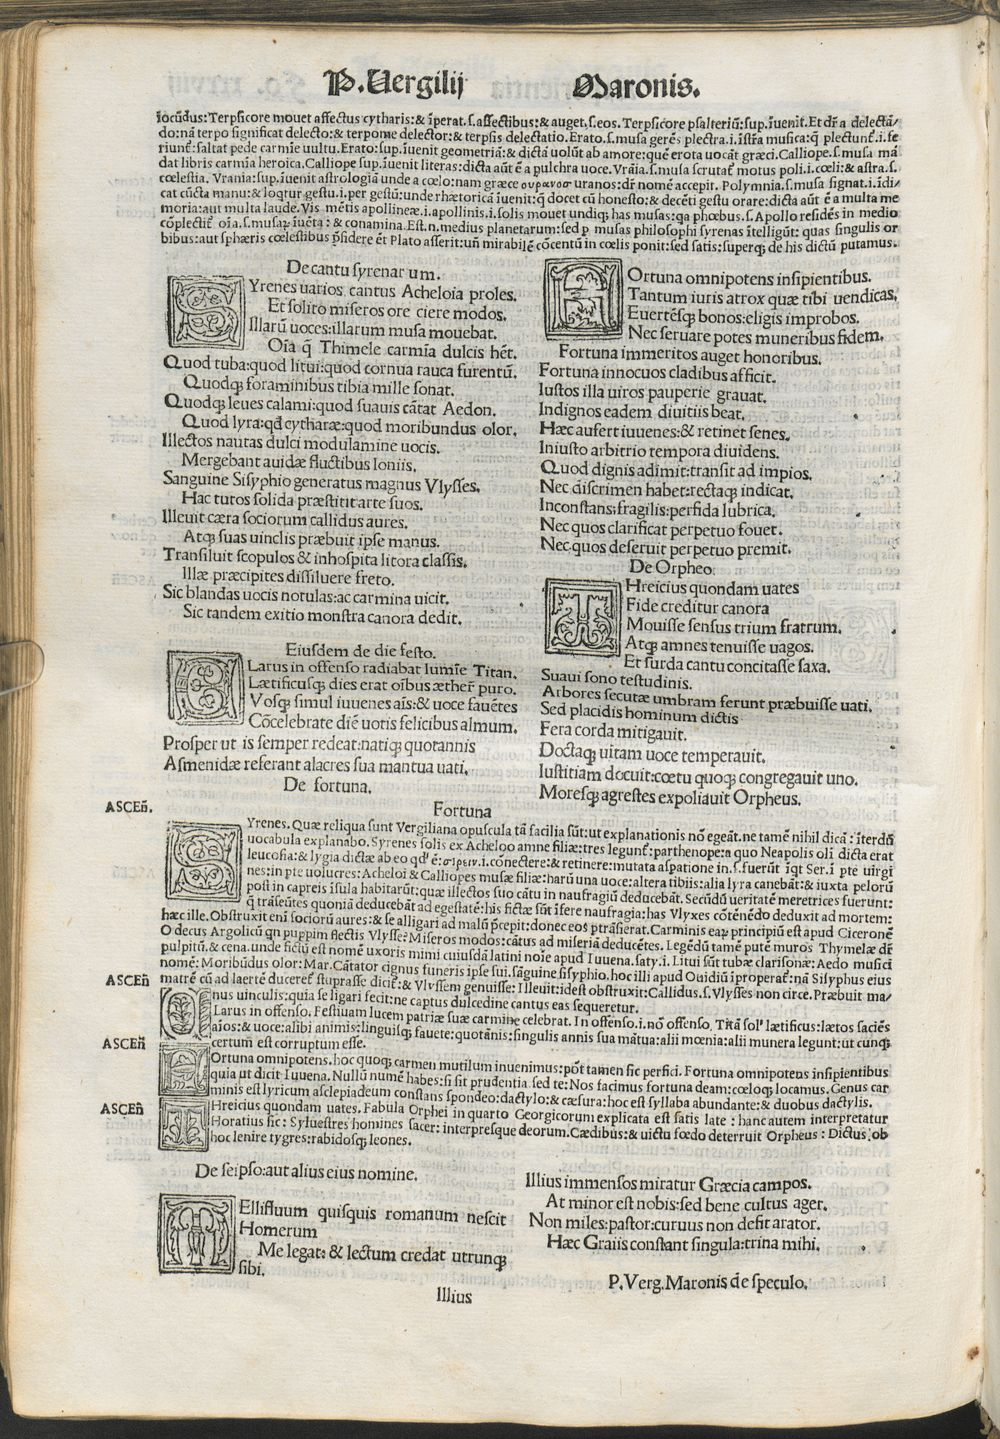 P. Vergilij Maronis.
iocũdius: Terpsicore mouet affectus cytharis: & ĩperat. s. affectibus: & auget, s. eos. Terpsicore psalteriũ: sup. ĩuenit. Et dr̃ a delectã/
do: nã terpo significat delecto: & terpome delector: & terpsis delectatio. Erato. s. musa gerẽs plectra. i. ĩstr̃a musica: q̃ plectunt. i. fe
riunt: saltat pede carmĩe uultu. Erato: sup. ĩuenit geometriã: & dictã uolũt ab amore: quẽ erota uocãt græci. Calliope. s. musa mã
dat libris carmĩa heroica. Calliope sup. ĩuenit literas: dicta aũt ẽ a pulchra uoce. Vrãia. s. musa scrutat motus poli. i. cœli: & astra. s.
cœlestia. Vrania: sup. ĩuenit astrologiã unde a cœlo: nam græce ουρανοσ uranos: dr̃ nomẽ accepit. Polymnia. s. musa signat. i. ĩdi/
cat cũcta manu: & loqtur gestu. i. per gestũ: unde rhætoricã ĩuenit: q̃ docet cũ honesto: & decẽti gestu orare: dicta aũt ẽ a multa me
moria: aut multa laude. Vis mẽtis apollineæ. i. apollinis. i. solis mouet undiq; has musas: qa phœbus. s. Apollo residẽs in medio
cõplectit oĩa. s. musaꝝ ĩuẽta: & conamina. Est. n. medius planetarum: sed p musas philosophi syrenas ĩtelligũt: quas singulis or
bibus: aut sphæris cœlestibus p̃sidere et Plato asserit: uñ mirabilẽ cõcentũ in cœlis ponit: sed satis: superq; de his dictũ putamus.
De cantu syrenarum.
SYrenes uarios cantus Acheloia proles.
Et solito miseros ore ciere modos.
Illarũ uoces: illarum musa mouebat.
Oĩa q̃ Thimele carmĩa dulcis hẽt.
Quod tuba: quod litui: quod cornua rauca furentũ.
Quodq; foraminibus tibia mille sonat.
Quodq; leues calami: quod suauis cãtat Aedon.
Quod lyra: qd̃ cytharæ: quod moribundus olor.
Illectos nautas dulci modulamine uocis.
Mergebant auidæ fluctibus Ioniis.
Sanguine Sisyphio generatus magnus Vlysses.
Hac tutos solida præstitit arte suos.
Illeuit cæra sociorum callidus aures.
Atq; suas uinclis præbuit ipse manus.
Transiluit scopulos & inhospita litora classis.
Illæ præcipites dissiluere freto.
Sic blandas uocis notulas: ac carmina uicit.
Sic tandem exitio monstra canora dedit.
Eiusdem de die festo.
CLarus in offenso radiabat lumĩe Titan.
Lætificusq; dies erat oĩbus æther̃ puro.
Vosq; simul iuuenes aĩs: & uoce fauẽtes
Cõcelebrate diẽ uotis felicibus almum.
Prosper ut is semper redeat: natiq; quotannis
Asmenidæ referant alacres sua mantua uati.
De fortuna.
FOrtuna omnipotens insipientibus.
Tantum iuris atrox quæ tibi uendicas,
Euertẽsq; bonos: eligis improbos.
Nec seruare potes muneribus fidem.
Fortuna immeritos auget honoribus.
Fortuna innocuos cladibus afficit.
Iustos illa uiros pauperie grauat.
Indignos eadem diuitiis beat.
Hæc aufert iuuenes: & retinet senes.
Iniusto arbitrio tempora diuidens.
Quod dignis adimit: transit ad impios.
Nec discrimen habet: rectaq; indicat.
Inconstans: fragilis: perfida lubrica.
Nec quos clarificat perpetuo fouet.
Nec quos deseruit perpetuo premit.
De Orpheo.
THreicius quondam uates
Fide creditur canora
Mouisse sensus trium fratrum.
Atq; amnes tenuisse uagos.
Et surda cantu concitasse saxa.
Suaui sono testudinis.
Arbores secutæ umbram ferunt præbuisse uati.
Sed placidis hominum dictis
Fera corda mitigauit.
Doctaq; uitam uoce temperauit.
Iustitiam docuit: cœtu quoq; congregauit uno.
Moresq; agrestes expoliauit Orpheus.
Fortuna
ASCEÑ.
SYrenes. Quæ reliqua sunt Vergiliana opuscula tã facilia sũt: ut explanationis nõ egeãt. ne tamẽ nihil dicã: ĩterdũ
uocabula explanabo. Syrenes solis ex Acheloo amne filiæ: tres legunt: parthenope: a quo Neapolis oli dicta erat
leucosia: & lygia dictæ ab eo qd' ẽ: σιρειν. i. cõnectere: & retinere: mutata aspatione in. s. fuerũt ĩqt Ser. i pte uirgi
nes: in pte uolucres: Acheloi & Calliopes musæ filiæ: harũ una uoce: altera tibiis: alia lyra canebãt: & iuxta pelorũ
post in capreis ĩsula habitarũt: quæ illectos suo cãtu in naufragiũ deducebãt. Secũdũ ueritatẽ meretrices fuerunt:
q̃ trãseũtes quoniã deducebãt ad egestatẽ: his fictæ sũt ĩfere naufragia: has Vlyxes cõtẽnẽdo deduxit ad mortem:
hæc ille. Obstruxit eni sociorũ aures: & se alligari ad malũ p̃cepit: donec eos p̃trãsierat. Carminis eaꝝ principiũ est apud Ciceronẽ
O decus Argolicũ qn puppim flectis Vlysse? Miseros modos: cãtus ad miseriã deducẽtes. Legẽdũ tamẽ putẽ muros Thymelæ dr̃
pulpitũ, & cena. unde fictũ est nomẽ uxoris mimi cuiusdã latini noĩe apud Iuuena. saty. i. Litui sũt tubæ clarisonæ: Aedo musici
nomẽ: Moribũdus olor: Mar. Cãtator cignus funeris ipse sui. sãguine sisyphio. hoc illi apud Ouidiũ ĩproperat: nã Silyphus eius
matrẽ cũ ad laertẽ duceret stuprasse dicit: & Vlyssem genuisse: Illeuit: idest obstruxit: Callidus. s. Vlysses non circe. Præbuit ma/
nus uinculis: quia se ligari fecit: ne captus dulcedine cantus eas sequeretur.
ASCEÑ
CLarus in offenso. Festiuam lucem patriæ suæ carmine celebrat. In offenso. i. nõ offenso. Titã sol' lætificus: lætos faciẽs
aĩos: & uoce: alibi animis: linguisq; fauete: quotãnis: singulis annis sua mãtua: alii mœnia: alii munera legunt: ut cunq;
certum est corruptum esse.
ASCEÑ
FOrtuna omnipotens. hoc quoq; carmen mutilum inuenimus: põt tamen sic perfici. Fortuna omnipotens insipientibus
quia ut dicit Iuuena. Nullũ numẽ habes: si sit prudentia sed te: Nos facimus fortuna deam: cœloq; locamus. Genus car
minis est lyricum asclepiadeum constans spondeo: dactylo: & cæsura: hoc est syllaba abundante: & duobus dactylis.
ASCEÑ
THreicius quondam uates. Fabula Orphei in quarto Georgicorum explicata est satis late: hanc autem interpretatur
Horatius sic: Syluestres homines sacer: interpresque deorum. Cædibus: & uictu fœdo deterruit Orpheus: Dictus ob
hoc lenire tygres: rabidosq; leones.
De seipso: aut alius eius nomine.
MEllifluum quisquis romanum nescit
Homerum
Me legat: & lectum credat utrunq;
sibi.
Illius immensos miratur Græcia campos.
At minor est nobis: sed bene cultus ager.
Non miles: pastor: curuus non defit arator.
Hæc Graiis constant singula: trina mihi.
P. Verg. Maronis de speculo.
Illius